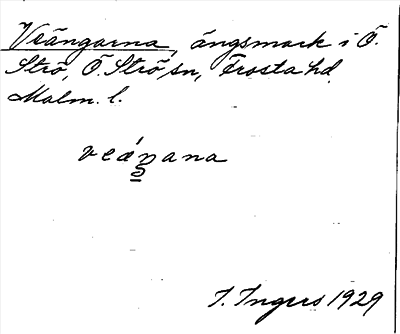 Vrängarna, ängsmark i Ö.
Strö, Ö. Strö sn, Frosta hd
Malm. l.
I. Ingers 1929